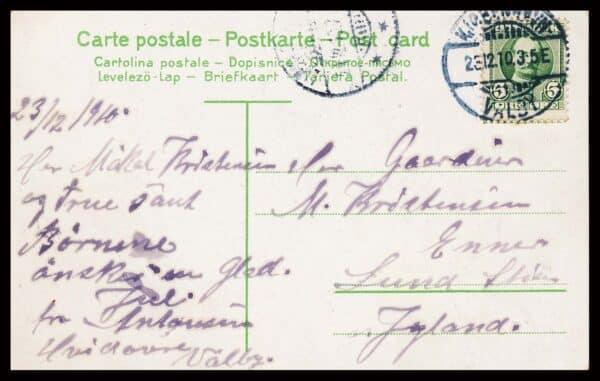 Carte postale – Postkarte – Post card
Cartolina postale – Dopisnice – Открытое письмо
Levelező-Lap – Briefkaart – Tarjeta Postal.
KJØBENHAVN
23.12.10.3-5E
VALBY
5 5
23/12 1910.
Her Mikal Kristensen
og frue samt
Börnene
önskes en Glad.
Jul.
fra Antonsen
Hvidovre Valby.
Her Gaardeier
M. Kristensen
Enner
Lund Stion
Jyland.